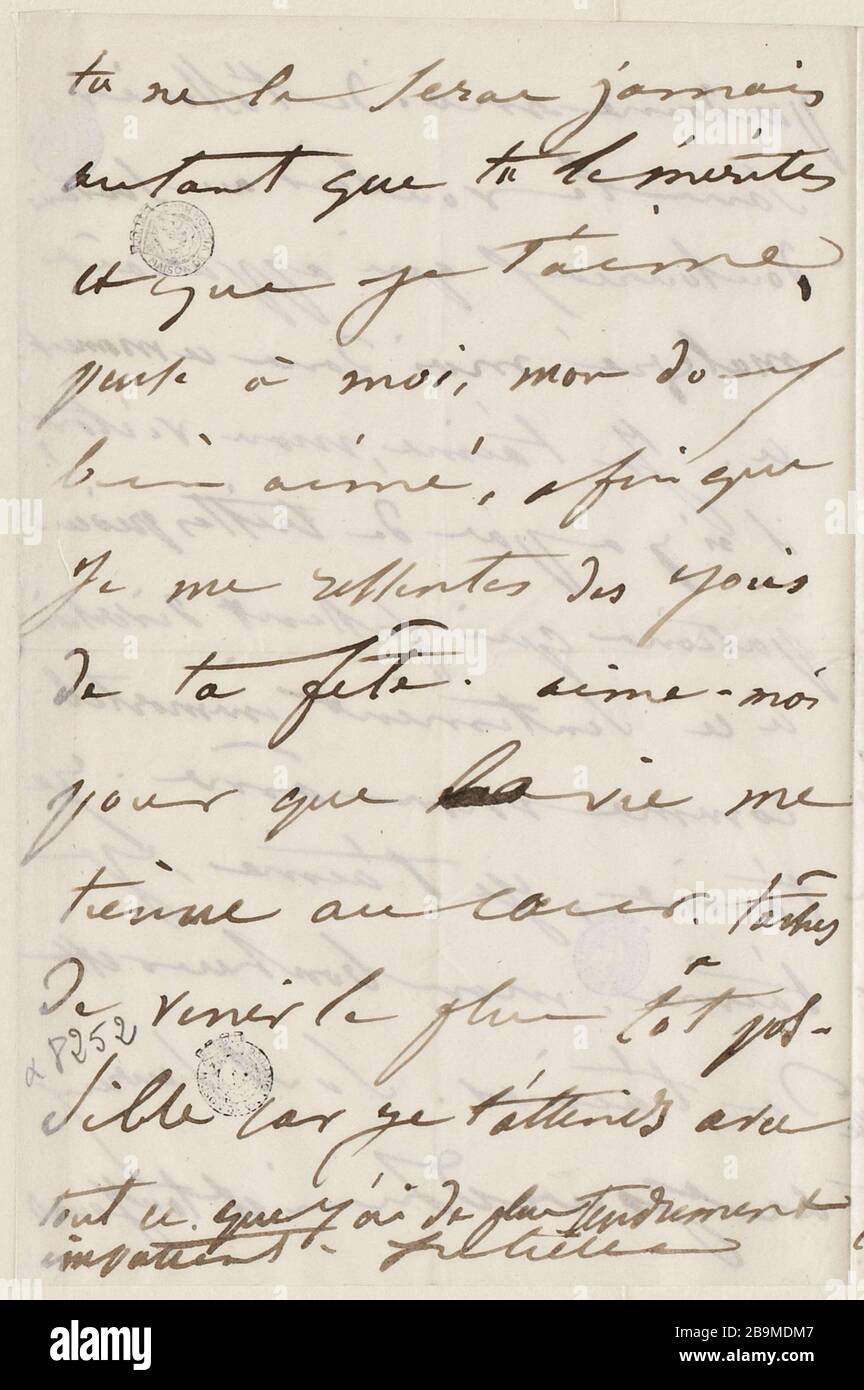 tu ne le seras jamais
autant que tu le mérites
et que je t'aime,
pense à moi, mon doux
bien aimé, afin que
je me ressentes des joies
de ta fête. aime-moi
pour que la vie me
tienne au cœur. tâches
de venir le plus tôt pos-
sible car je t'attends avec
tout ce que j'ai de plus tendrement
impatient. Juliette
α 8252
MAISON DE VI
alamy
Image ID: 2B9MDM7
www.alamy.com